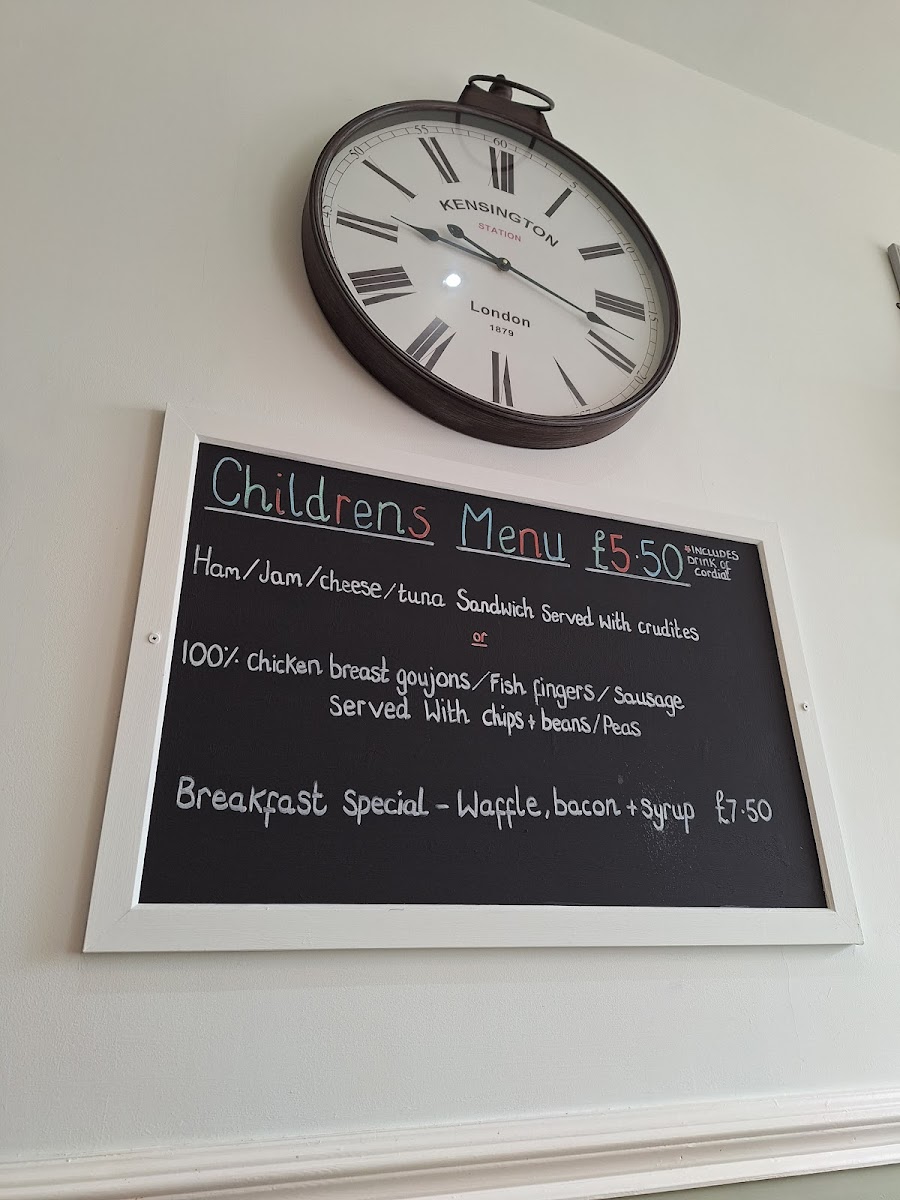 60
55
5
50
10
45
15
20
KENSINGTON
STATION
London
1879
Childrens Menu £5.50 *INCLUDES
Drink of
Cordial
Ham/Jam/cheese/tuna Sandwich Served with crudites
or
100% Chicken breast goujons/Fish fingers/Sausage
Served With chips + beans/Peas
Breakfast Special - Waffle, bacon + syrup £7.50